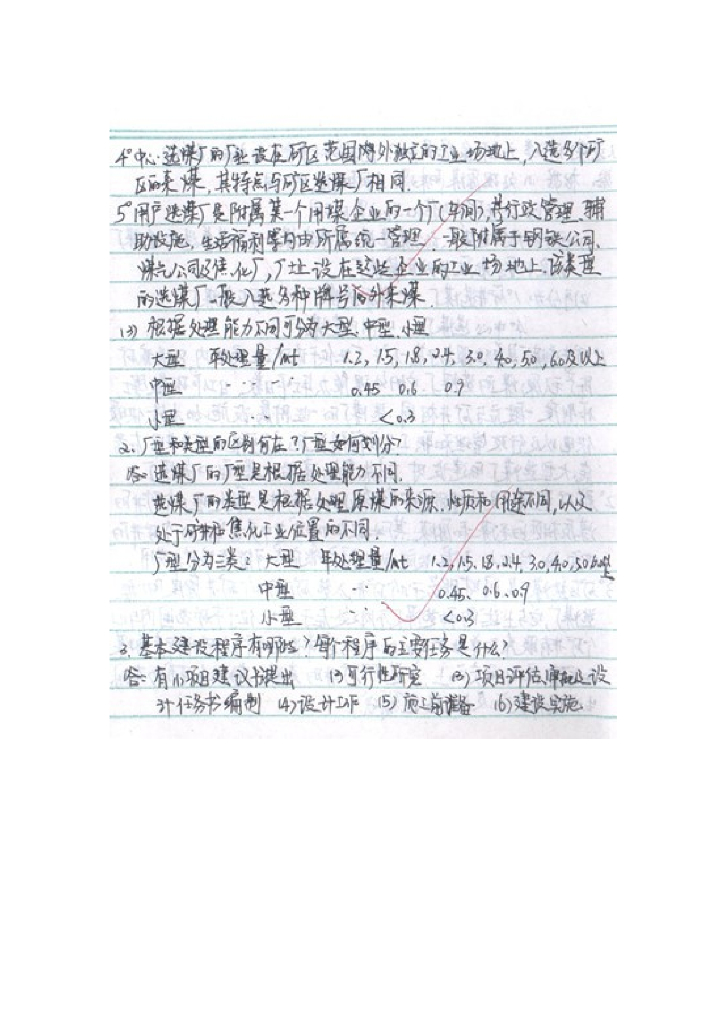 4° 中心选煤厂的厂址设在矿区范围内外独立的工业场地上,入选多个矿
区的来煤,其特点与矿区选煤厂相同.
5° 用户选煤厂是附属某一个用煤企业的一个厂(车间),其行政管理、辅
助设施、生活福利等均由所属统一管理.一般附属于钢铁公司、
煤气公司及焦化厂,厂址设在这些企业的工业场地上.该类型
的选煤厂一般入选多种牌号的外来煤.
(3) 根据处理能力不同可分为大型、中型、小型
大型 年处理量/Mt 1.2, 1.5, 1.8, 2.4, 3.0, 4.0, 5.0, 6.0及以上
中型 ‥ ‥ 0.45 0.6 0.9
小型 ‥ <0.3
2. 厂型和类型的区别何在?厂型如何划分?
答: 选煤厂的厂型是根据处理能力不同.
选煤厂的类型是根据处理原煤的来源、性质和用途不同,以及
处于矿井和焦化工业位置的不同.
厂型分为三类: 大型 年处理量/Mt 1.2, 1.5, 1.8, 2.4, 3.0, 4.0, 5.0, 6.0以上
中型 ‥ 0.45、0.6、0.9
小型 ‥ <0.3
3. 基本建设程序有哪些?每个程序的主要任务是什么?
答: 有(1)项目建议书提出 (2)可行性研究 (3)项目评估、审批及设
计任务书编制 (4)设计工作 (5)施工前准备 (6)建设实施